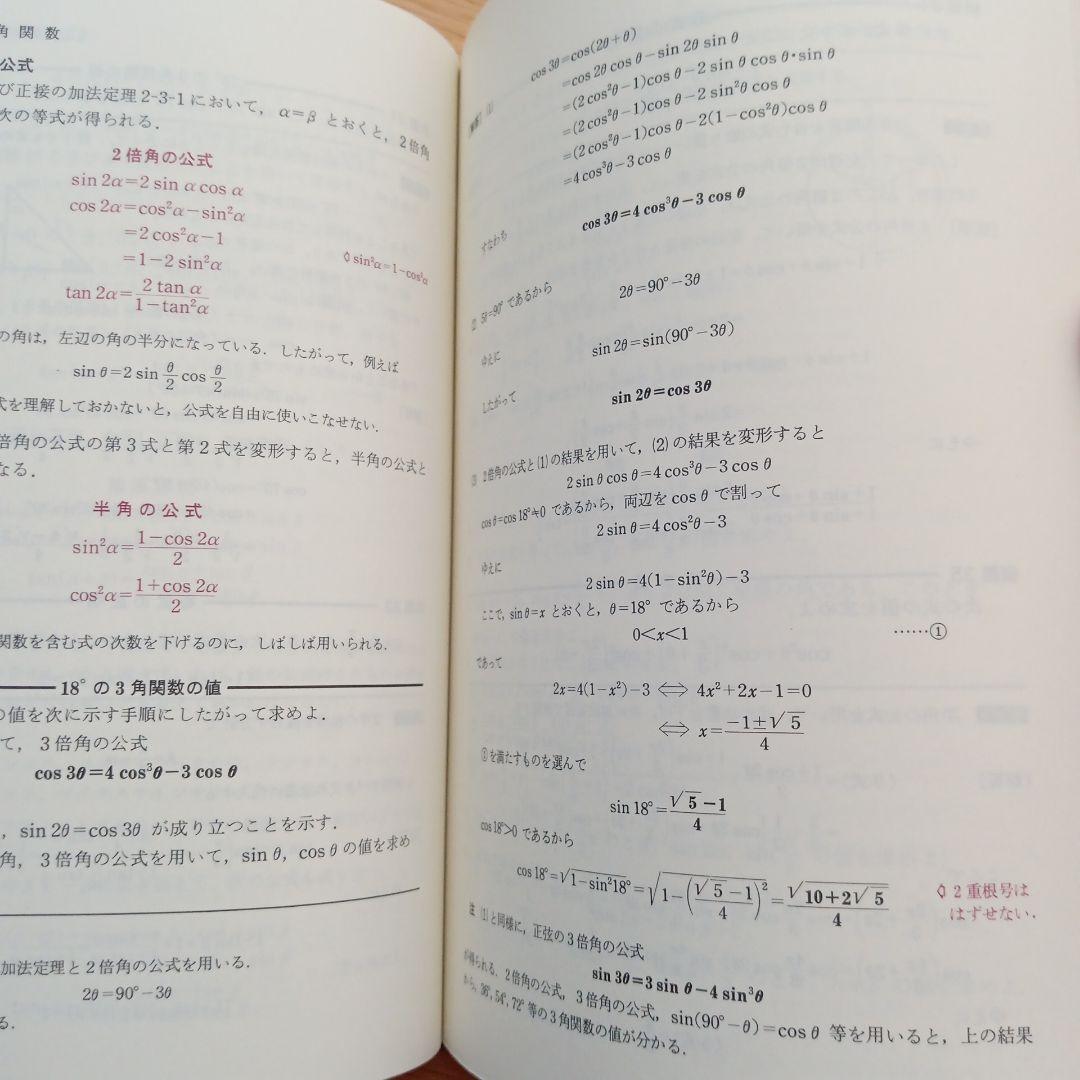 角関数
公式
び正接の加法定理2-3-1において，α=β とおくと，2倍角
次の等式が得られる．
2倍角の公式
sin 2α=2 sin α cos α
cos 2α=cos²α−sin²α
=2 cos²α−1
=1−2 sin²α
◊ sin²α=1−cos²α
tan 2α=2 tan α/1−tan²α
の角は，左辺の角の半分になっている．したがって，例えば
sin θ=2 sin θ/2 cos θ/2
式を理解しておかないと，公式を自由に使いこなせない．
倍角の公式の第3式と第2式を変形すると，半角の公式と
なる．
半角の公式
sin²α=1−cos 2α/2
cos²α=1+cos 2α/2
関数を含む式の次数を下げるのに，しばしば用いられる．
18°の3角関数の値
の値を次に示す手順にしたがって求めよ．
て，3倍角の公式
cos 3θ=4 cos³θ−3 cos θ
，sin 2θ=cos 3θ が成り立つことを示す．
角，3倍角の公式を用いて，sin θ，cos θ の値を求め
加法定理と2倍角の公式を用いる．
2θ=90°−3θ
る．
(1) cos 3θ=cos(2θ+θ)
=cos 2θ cos θ−sin 2θ sin θ
=(2 cos²θ−1)cos θ−2 sin θ cos θ・sin θ
=(2 cos²θ−1)cos θ−2 sin²θ cos θ
=(2 cos²θ−1)cos θ−2(1−cos²θ)cos θ
=4 cos³θ−3 cos θ
すなわち
cos 3θ=4 cos³θ−3 cos θ
(2) 5θ=90° であるから
2θ=90°−3θ
ゆえに
sin 2θ=sin(90°−3θ)
したがって
sin 2θ=cos 3θ
(3) 2倍角の公式と(1)の結果を用いて，(2)の結果を変形すると
2 sin θ cos θ=4 cos³θ−3 cos θ
cos θ=cos 18°≠0 であるから，両辺を cos θ で割って
2 sin θ=4 cos²θ−3
ゆえに
2 sin θ=4(1−sin²θ)−3
ここで，sin θ=x とおくと，θ=18° であるから
0<x<1 ……①
であって
2x=4(1−x²)−3 ⟺ 4x²+2x−1=0
⟺ x=−1±√5/4
①を満たすものを選んで
sin 18°=√5−1/4
cos 18°>0 であるから
cos 18°=√1−sin²18°=√1−(√5−1/4)²=√10+2√5/4
◊ 2重根号は
はずせない．
注 (1)と同様に，正弦の3倍角の公式
sin 3θ=3 sin θ−4 sin³θ
が得られる．2倍角の公式，3倍角の公式，sin(90°−θ)=cos θ 等を用いると，上の結果
から，36°，54°，72° 等の3角関数の値が分かる．